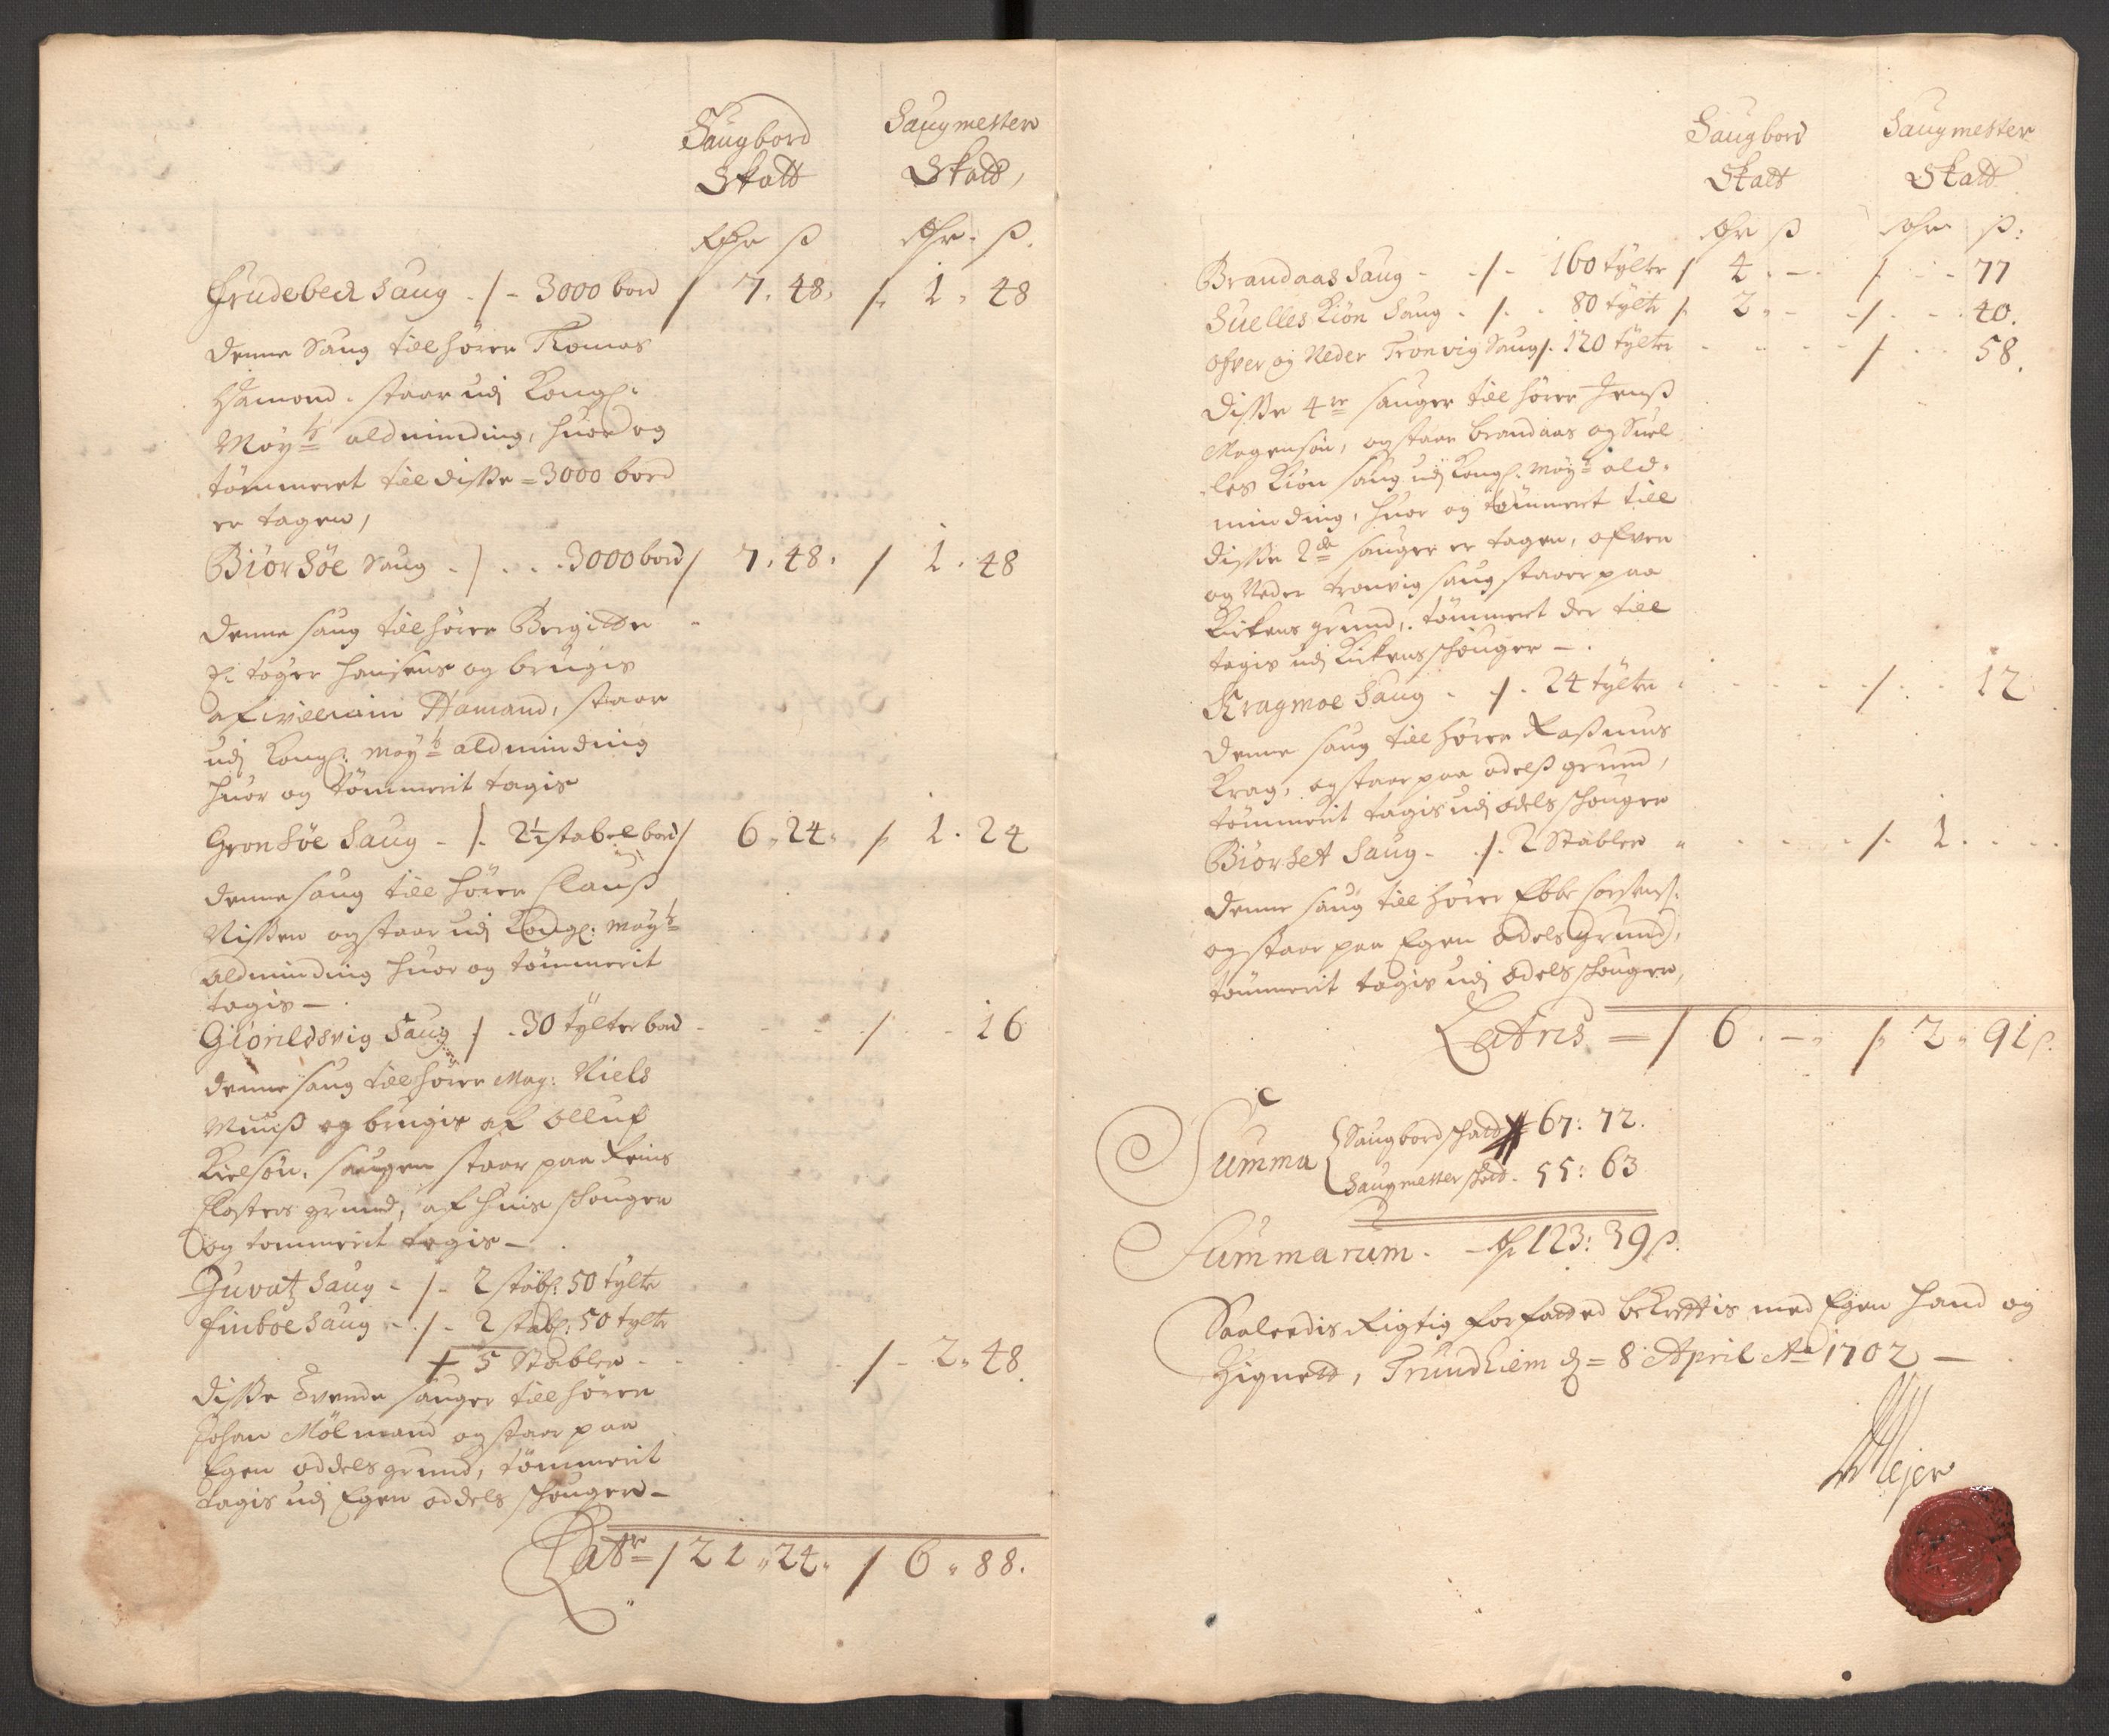 Saugbord Saugmester
Skatt Skatt,
Rdr ß Rdr. ß.
Frudebeck Saug - / - 3000 bord / 7. 48. / 1. 48
denne Saug till hører Thomas
Hamond. staar udj Kongl:
Mayts aldminding, huor og
tømmeret till disse = 3000 bord
er tagen,
Biørsøe Saug - / . . . 3000 bord / 7. 48. / 1. 48
denne saug till hører Birgitte
Sl: Tøger Hansens og brugis
af william Hamand, staar
udj Kongl: Mayts aldminding
huor og tømmerit tagis
Grønsøe Saug - /. 2½ stabel bord / 6. 24. / 1. 24
denne saug till hører Clauß
Nissen og staar udj Kongl: Mayts
aldminding huor og tømmerit
tagis -
Giørildsvig Saug / . 30 tylter bord - - - / - - 16
denne saug till hører Mag: Niels
Muuß og brugis af Olluf
Kielsøn, saugen staar paa Reins
Closters grund, af huis schouger
og tommerit tagis -
Juvatz Saug - / - 2 stabl: 50 tylter
Finboe Saug - / - 2 stabl: 50 tylter
+ 5 Stabler - - - / - 2. 48.
disse tvende sauger till hører
Johan Mølmand og staar paa
Egen oddels grund, tømmerit
tagis udj Egen oddels schouger -
Latr = / 21. 24. / 6. 88.
Saugbord Saugmester
Skatt Skatt
Rdr ß Rdr ß:
Brandaas Saug - - / - 160 tylter / 4. - . / - - 77
Suelles Kiøn Saug - / . . 80 tylter / 2. - - / . - . 40.
Ofver og Neder Tronvig Saug /. 120 tylter - - - - / . . 58.
disse 4re sauger till hører Jenß
Mogensøn, og staar Brandaas og Suel
les Kiøn saug udj Kongl: Mayts ald-
minding, huor og tømmert till
disse 2de sauger er tagen, ofver
og Neder tronvig saug staar paa
Kirkens grund, tømmert der till
tagis udj Kirkens schouger -
Kragmoe Saug - . /. 24 tylter - - - - / . . 12
denne saug till hører Rasmus
Krag, og staar paa odelß grund,
tømmerit tagis udj odels schouger
Biørset Saug - . / . 2 Stabler - - - - / . 1. - - .
denne saug till hører Ebbe Corstens:
og staar paa Egen odels Grund,
tømmerit tagis udj odels schouger,
Latris = / 6. - . / 2. 91 ß.
Summa { Saugbord schatt 67: 72.
Saugmester schatt - 55: 63
Summarum - Rdr 123: 39 ß.
Saaledis Rigtig forfatted bekreftis med Egen Hand og
Zignett, Trundhiem d = 8 April Ao 1702 -
Mejer